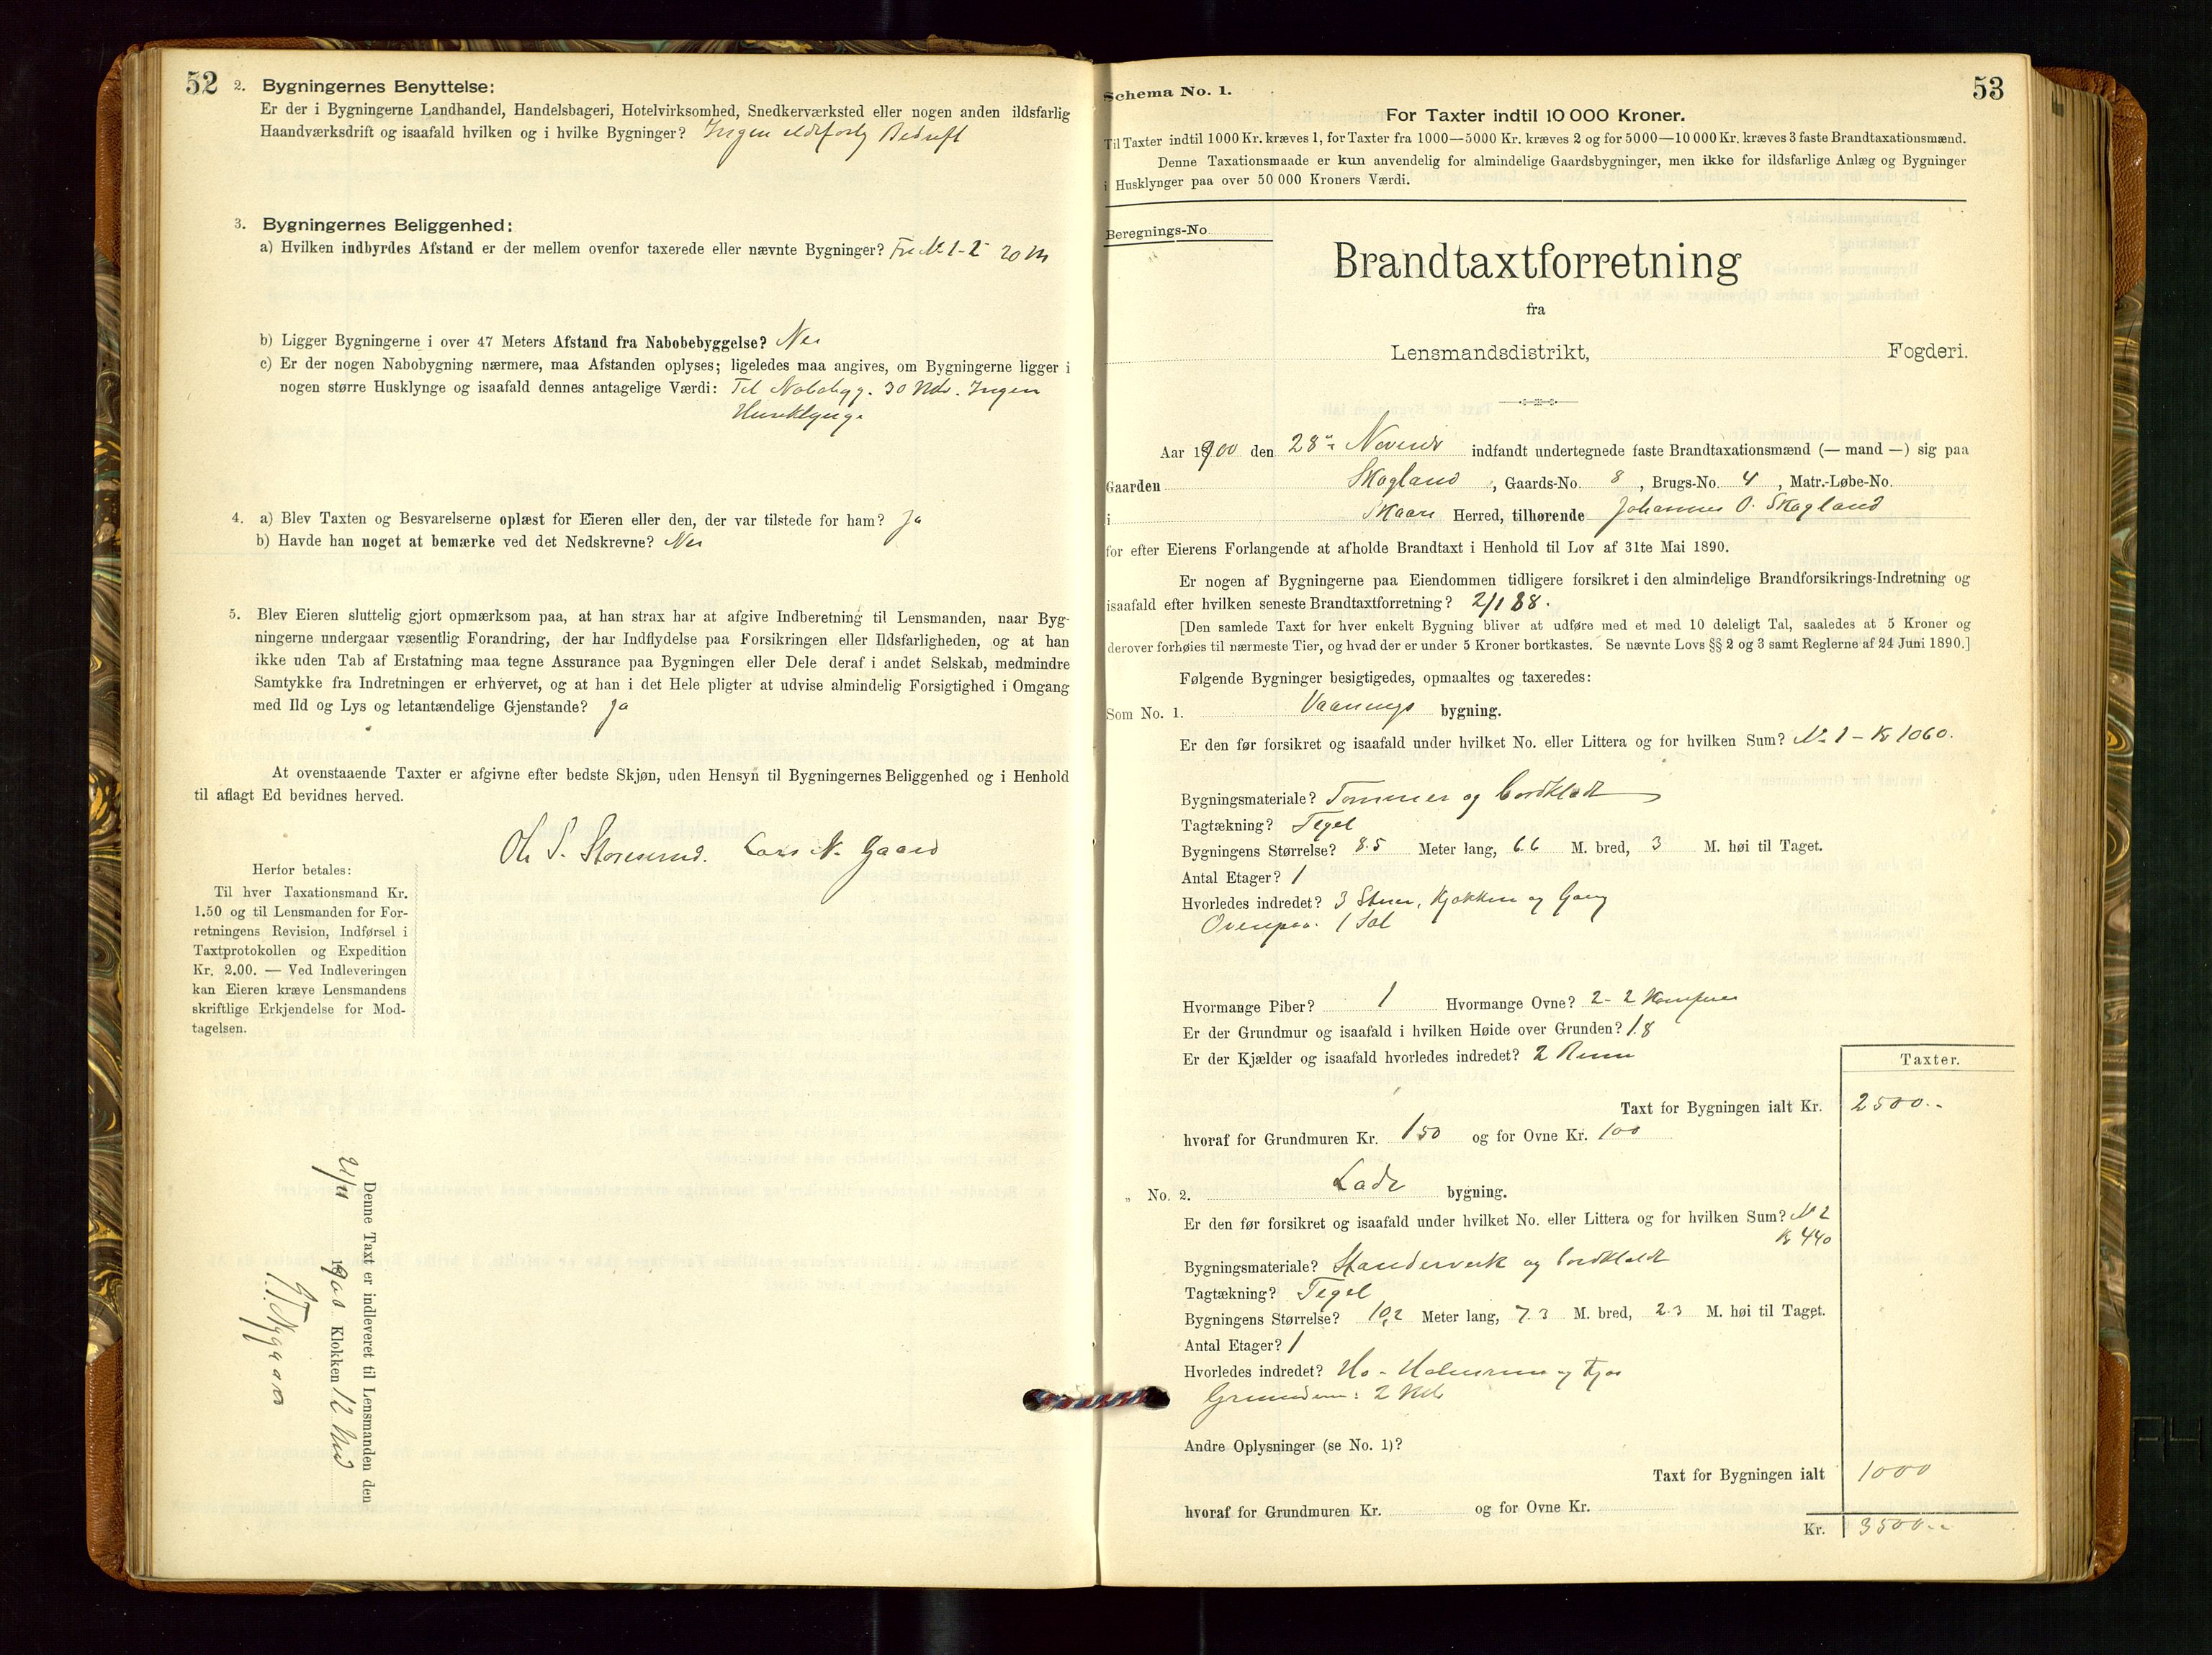 52
2. Bygningernes Benyttelse:
Er der i Bygningerne Landhandel, Handelsbageri, Hotelvirksomhed, Snedkerværksted eller nogen anden ildsfarlig
Haandværksdrift og isaafald hvilken og i hvilke Bygninger? Ingen ildsfarlig Bedrift
3. Bygningernes Beliggenhed:
a) Hvilken indbyrdes Afstand er der mellem ovenfor taxerede eller nævnte Bygninger? Fra No 1-2 20 M
b) Ligger Bygningerne i over 47 Meters Afstand fra Nabobebyggelse? Nei
c) Er der nogen Nabobygning nærmere, maa Afstanden oplyses; ligeledes maa angives, om Bygningerne ligger i
nogen større Husklynge og isaafald dennes antagelige Værdi: Til Nabobyg. 30 Mtr. Ingen
Husklynge
4. a) Blev Taxten og Besvarelserne oplæst for Eieren eller den, der var tilstede for ham? Ja
b) Havde han noget at bemærke ved det Nedskrevne? Nei
5. Blev Eieren sluttelig gjort opmærksom paa, at han strax har at afgive Indberetning til Lensmanden, naar Byg-
ningerne undergaar væsentlig Forandring, der har Indflydelse paa Forsikringen eller Ildsfarligheden, og at han
ikke uden Tab af Erstatning maa tegne Assurance paa Bygningen eller Dele deraf i andet Selskab, medmindre
Samtykke fra Indretningen er erhvervet, og at han i det Hele pligter at udvise almindelig Forsigtighed i Omgang
med Ild og Lys og letantændelige Gjenstande? Ja
At ovenstaaende Taxter er afgivne efter bedste Skjøn, uden Hensyn til Bygningernes Beliggenhed og i Henhold
til aflagt Ed bevidnes herved.
Ole S. Lars N. Gaard
Herfor betales:
Til hver Taxationsmand Kr.
1.50 og til Lensmanden for For-
retningens Revision, Indførsel i
Taxtprotokollen og Expedition
Kr. 2.00. — Ved Indleveringen
kan Eieren kræve Lensmandens
skriftlige Erkjendelse for Mod-
tagelsen.
Denne Taxt er indleveret til Lensmanden den
1900 Klokken 12 Mid
Nygaard
53
Schema No. 1.
For Taxter indtil 10 000 Kroner.
Til Taxter indtil 1000 Kr. kræves 1, for Taxter fra 1000—5000 Kr. kræves 2 og for 5000—10 000 Kr. kræves 3 faste Brandtaxationsmænd.
Denne Taxationsmaade er kun anvendelig for almindelige Gaardsbygninger, men ikke for ildsfarlige Anlæg og Bygninger
i Husklynger paa over 50 000 Kroners Værdi.
Beregnings-No
Brandtaxtforretning
fra
Lensmandsdistrikt, Fogderi.
Aar 1900 den 28de Novembr indfandt undertegnede faste Brandtaxationsmænd (— mand —) sig paa
Gaarden Skogland, Gaards-No. 8, Brugs-No. 4, Matr.-Løbe-No.
i Skaare Herred, tilhørende Johannes O. Skogland
for efter Eierens Forlangende at afholde Brandtaxt i Henhold til Lov af 31te Mai 1890.
Er nogen af Bygningerne paa Eiendommen tidligere forsikret i den almindelige Brandforsikrings-Indretning og
isaafald efter hvilken seneste Brandtaxtforretning? 2/1 88.
[Den samlede Taxt for hver enkelt Bygning bliver at udføre med et med 10 deleligt Tal, saaledes at 5 Kroner og
derover forhøies til nærmeste Tier, og hvad der er under 5 Kroner bortkastes. Se nævnte Lovs §§ 2 og 3 samt Reglerne af 24 Juni 1890.]
Følgende Bygninger besigtigedes, opmaaltes og taxeredes:
Som No. 1. Vaanings bygning.
Er den før forsikret og isaafald under hvilket No. eller Littera og for hvilken Sum? No 1 - Kr 1060.
Bygningsmateriale? Tømmer og bordklædt
Tagtækning? Tegel
Bygningens Størrelse? 8.5 Meter lang, 6.6 M. bred, 3 M. høi til Taget.
Antal Etager? 1
Hvorledes indredet? 3 Stuer, Kjøkken og Gang
Ovenpaa: 1 Sal
Hvormange Piber? 1 Hvormange Ovne? 2 - 2 Komfurer
Er der Grundmur og isaafald i hvilken Høide over Grunden? 1.8
Er der Kjælder og isaafald hvorledes indredet? 2 Rum
Taxter.
Taxt for Bygningen ialt Kr. 2500..
hvoraf for Grundmuren Kr. 150 og for Ovne Kr. 100
„ No. 2. Lade bygning.
Er den før forsikret og isaafald under hvilket No. eller Littera og for hvilken Sum? No 2
Kr 440
Bygningsmateriale? Standerverk og bordklædt
Tagtækning? Tegel
Bygningens Størrelse? 10,2 Meter lang, 7.3 M. bred, 2.3 M. høi til Taget.
Antal Etager? 1
Hvorledes indredet? Hø- og Fjøs
Grundmur: 2 Mtr
Andre Oplysninger (se No. 1)?
Taxt for Bygningen ialt 1000
hvoraf for Grundmuren Kr. og for Ovne Kr.
Kr. 3500..